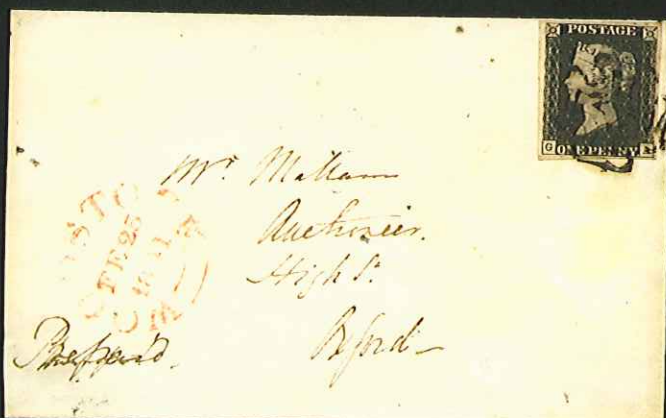 POSTAGE
G ONE PENNY
Mr. Mallam
Auctioneer.
High St.
Oxford
FE 25
1841
Prepaid.